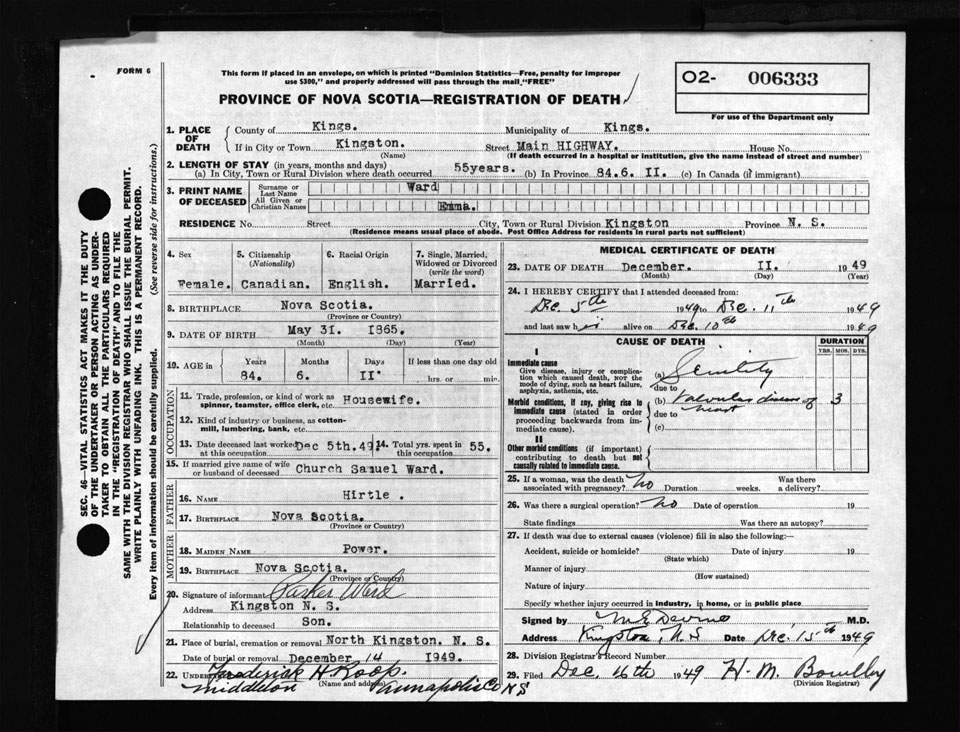 FORM 6
This form if placed in an envelope, on which is printed "Dominion Statistics—Free, penalty for improper
use $300," and properly addressed will pass through the mail, "FREE"
PROVINCE OF NOVA SCOTIA—REGISTRATION OF DEATH
O2- 006333
For use of the Department only
SEC. 46—VITAL STATISTICS ACT MAKES IT THE DUTY
OF THE UNDERTAKER OR PERSON ACTING AS UNDER-
TAKER TO OBTAIN ALL THE PARTICULARS REQUIRED
IN THE "REGISTRATION OF DEATH" AND TO FILE THE
SAME WITH THE DIVISION REGISTRAR WHO SHALL ISSUE THE BURIAL PERMIT.
WRITE PLAINLY WITH UNFADING INK. THIS IS A PERMANENT RECORD.
Every item of information should be carefully supplied. (See reverse side for instructions.)
1. PLACE OF DEATH
County of Kings. Municipality of Kings.
If in City or Town Kingston. Street Main HIGHWAY. House No.
(Name) (If death occurred in a hospital or institution, give the name instead of street and number)
2. LENGTH OF STAY (in years, months and days)
(a) In City, Town or Rural Division where death occurred 55years. (b) In Province 84.6. II. (c) In Canada (if immigrant)
3. PRINT NAME OF DECEASED
Surname or Last Name Ward
All Given or Christian Names Emma.
RESIDENCE No. Street City, Town or Rural Division Kingston Province N. S.
(Residence means usual place of abode. Post Office Address for residents in rural parts not sufficient)
4. Sex 5. Citizenship (Nationality) 6. Racial Origin 7. Single, Married, Widowed or Divorced (write the word)
Female. Canadian. English. Married.
8. BIRTHPLACE Nova Scotia.
(Province or Country)
9. DATE OF BIRTH May 31. I865.
(Month) (Day) (Year)
10. AGE in Years Months Days If less than one day old
84. 6. II hrs. or min.
OCCUPATION
11. Trade, profession, or kind of work as
spinner, teamster, office clerk, etc. Housewife.
12. Kind of industry or business, as cotton-
mill, lumbering, bank, etc.
13. Date deceased last worked at this occupation Dec 5th.49. 14. Total yrs. spent in this occupation 55.
15. If married give name of wife
or husband of deceased Church Samuel Ward.
FATHER
16. NAME Hirtle .
17. BIRTHPLACE Nova Scotia.
(Province or Country)
MOTHER
18. MAIDEN NAME Power.
19. BIRTHPLACE Nova Scotia.
(Province or Country)
20. Signature of informant Parker Ward
Address Kingston N. S.
Relationship to deceased Son.
21. Place of burial, cremation or removal North Kingston. N. S.
Date of burial or removal December 14 1949.
22. UNDERTAKER Frederick H Roop.
(Name and address)
Middleton Annapolis Co N S
MEDICAL CERTIFICATE OF DEATH
23. DATE OF DEATH December. II. 1949
(Month) (Day) (Year)
24. I HEREBY CERTIFY that I attended deceased from:
Dec. 5th 1949 to Dec. 11th 1949
and last saw h alive on Dec. 10th 1949
CAUSE OF DEATH DURATION
YRS. MOS. DYS.
I
Immediate cause
Give disease, injury or complica-
tion which caused death, not the
mode of dying, such as heart failure,
asphyxia, asthenia, etc.
(a) Senility
due to
Morbid conditions, if any, giving rise to
immediate cause (stated in order
proceeding backwards from im-
mediate cause).
(b) Valvular disease of 3
due to heart
(c)
II
Other morbid conditions (if important)
contributing to death but not
causally related to immediate cause.
25. If a woman, was the death
associated with pregnancy? No Duration weeks. Was there
a delivery?
26. Was there a surgical operation? No Date of operation 19
State findings Was there an autopsy?
27. If death was due to external causes (violence) fill in also the following:—
Accident, suicide or homicide? Date of injury 19
(State which)
Manner of injury
(How sustained)
Nature of injury
Specify whether injury occurred in industry, in home, or in public place
Signed by M E Devine M.D.
Address Kingston, N S Date Dec. 15th 1949
28. Division Registrar's Record Number
29. Filed Dec. 16th 1949 H. M. Bowlby
(Division Registrar)